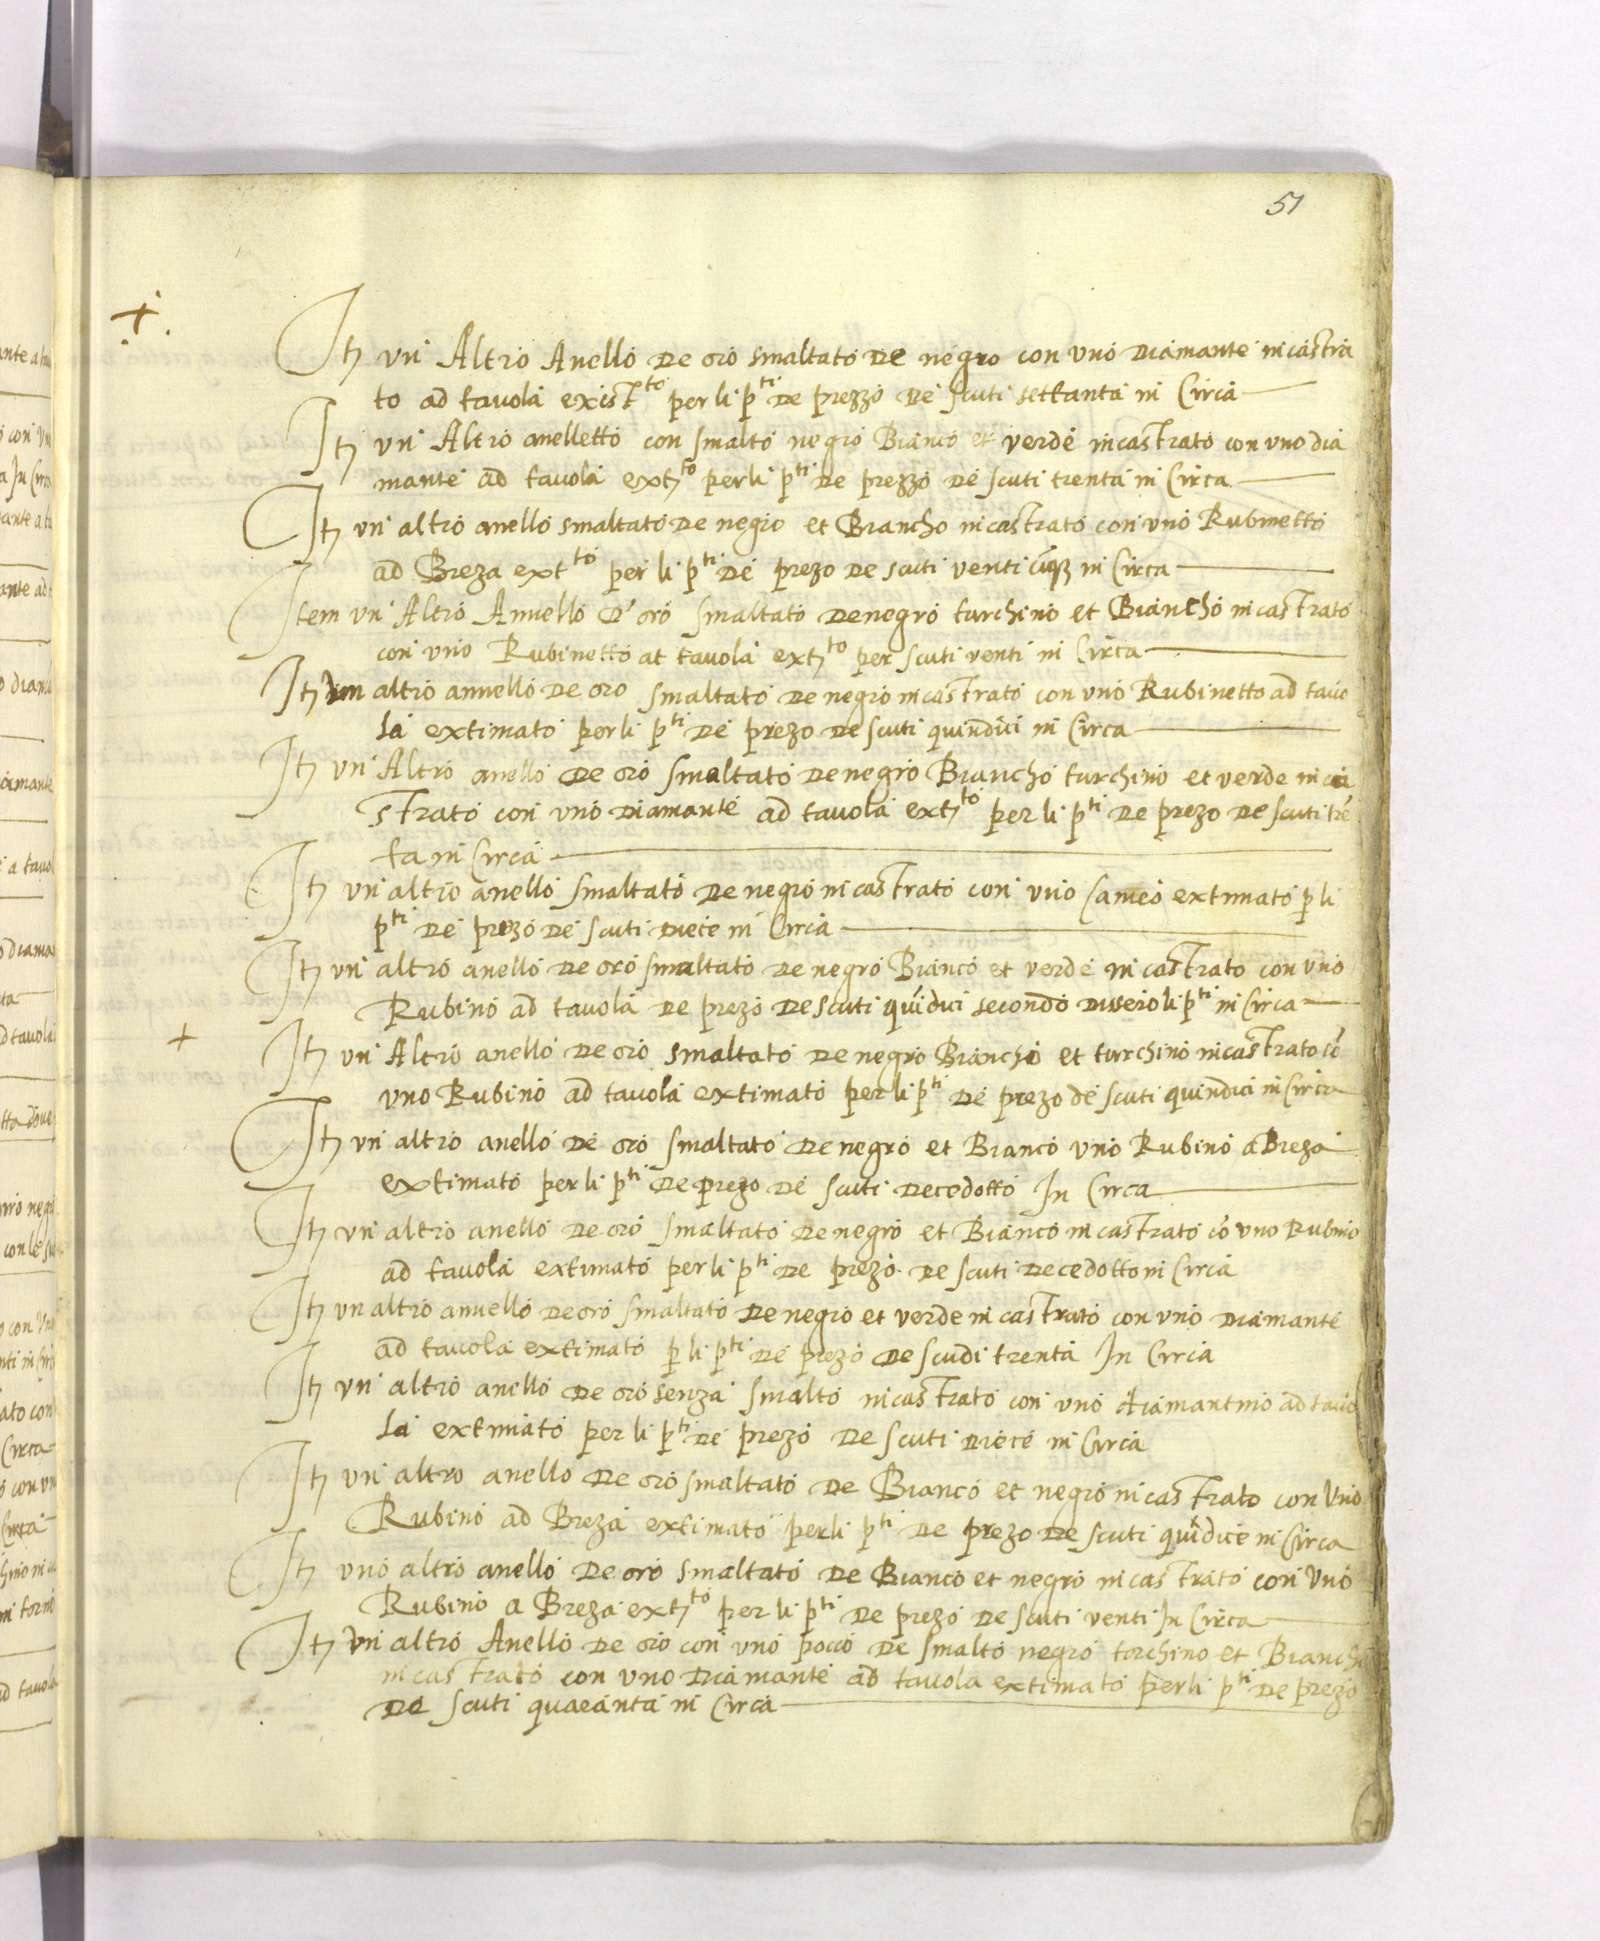 51
+
Itȝ vn' Altro Anello de oro smaltato de negro con vno diamante incastra
to ad tauola exist.to per li p.ti de prezzo de scuti settanta in Circa
Itȝ vn' Altro anelletto con smalto negro Bianco et verde incastrato con vno dia
mante ad tauola extȝto per li p.ti de prezzo de scuti trenta in Circa
Itȝ vn' altro anello smaltato de negro et Biancho incastrato con vno Rubinetto
ad Breza ext.to per li p.ti de prezo de scuti venti in Circa
Item vn' Altro Annello d'oro smaltato de negro turchino et Biancho incastrato
con vno Rubinetto at tauola extȝto per scuti venti in Circa
Itȝ vn altro annello de oro smaltato de negro incastrato con vno Rubinetto ad tauo
la extimato per li p.ti de prezo de scuti quindici in Circa
Itȝ vn' Altro anello de oro smaltato de negro Biancho turchino et verde inca
strato con vno diamante ad tauola extȝto per li p.ti de prezo de scuti trē
ta in Circa
Itȝ vn' altro anello smaltato de negro incastrato con vno Cameo extimato p li
p.ti de prezo de scuti diece in Circa
Itȝ vn' altro anello de oro smaltato de negro Bianco et verde incastrato con vno
Rubino ad tauola de prezo de scuti quīdici secondo dissero li p.ti in Circa
+
Itȝ vn' Altro anello de oro smaltato de negro Biancho et turchino incastrato cō
vno Rubino ad tauola extimato per li p.ti de prezo de scuti quindici in Circa
Itȝ vn' altro anello de oro smaltato de negro et Bianco vno Rubino a Breza
extimato per li p.ti de prezo de scuti decedotto In Circa
Itȝ vn' altro anello de oro smaltato de negro et Bianco incastrato cō vno Rubino
ad tauola extimato per li p.ti de prezo de scuti decedotto in Circa
Itȝ vn altro annello de oro smaltato de negro et verde in castrato con vno diamante
ad tauola extimato p li p.ti de prezo de scudi trenta In Circa
Itȝ vn' altro anello de oro senza smalto incastrato con vno diamantino ad tauo
la extimato per li p.ti de prezo de scuti diece in Circa
Itȝ vn' altro anello de oro smaltato de Bianco et negro incastrato con vno
Rubino ad Breza extimato per li p.ti de prezo de scuti quīdice in Circa
Itȝ vno altro anello de oro smaltato de Bianco et negro incastrato con vno
Rubino a Breza extȝto per li p.ti de prezo de scuti venti In Circa
Itȝ vn' altro Anello de oro con vno pocco de smalto negro torchino et Biancho
incastrato con vno diamante ad tauola extimato per li p.ti de prezo
de scuti quaranta in Circa